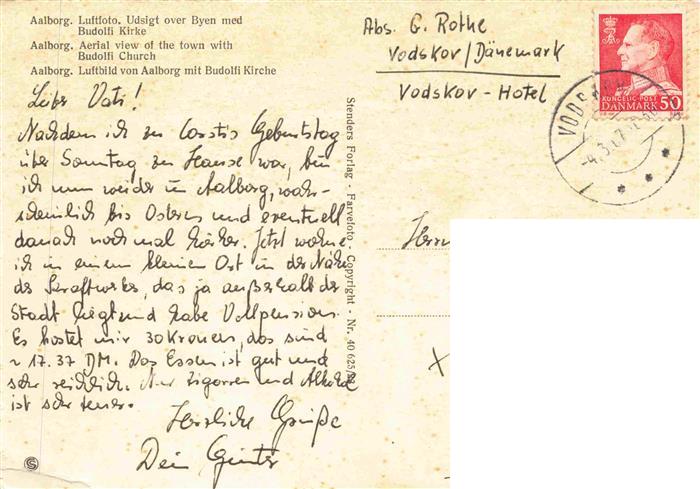 Aalborg. Luftfoto. Udsigt over Byen med
Budolfi Kirke
Aalborg. Aerial view of the town with
Budolfi Church
Aalborg. Luftbild von Aalborg mit Budolfi Kirche
Lieber Vati!
Nachdem ich zu Geburtstag
über Sonntag zu Hause war, bin
ich nun wieder in Aalborg, wahr-
scheinlich bis Ostern und eventuell
danach noch mal hierher. Jetzt wohne
ich in einem kleinen Ort in der Nähe
des Kraftwerkes, das ja außerhalb der
Stadt liegt und habe Vollpension.
Es kostet mir 30 Kronen, das sind
~ 17.37 DM. Das Essen ist gut und
sehr reichlich. Nur Zigarren und Alkohol
ist sehr teuer.
Herzliche Grüße
Dein Günter
Stenders Forlag - Farvefoto - Copyright - Nr. 40 625/
Abs. G. Rothe
Vodskov/Dänemark
Vodskov - Hotel
KONGELIG POST
DANMARK 50
VODSKOV
-4.3.67
Herrn